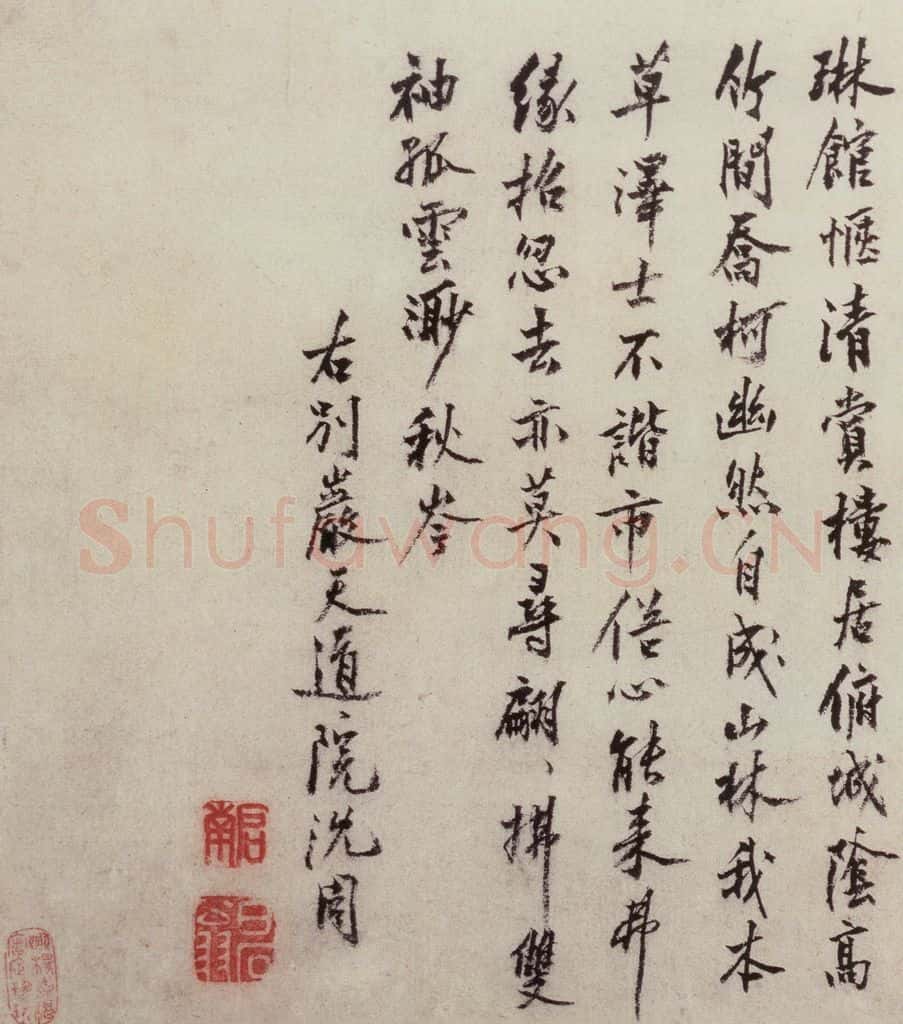 琳館愜清賞樓居俯城陰高
竹間喬柯幽然自成山林我本
草澤士不諧市俗心能来弗
緣招忽去亦莫尋翩、拂雙
袖孤雲渺秋岑
右別巖天道院沈周
啓南
白石翁
Shufawang.CN